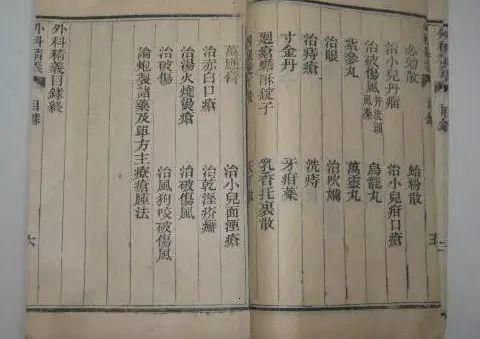 必効散　蛤粉散
治小兒丹瘤　治小兒疳口瘡
治破傷風 烏龍丸
紫參丸　萬靈丸
治眼　治吹嬭
治痔瘡　洗痔
寸金丹　牙疳藥
錠子　乳香托裏散
萬應膏　治小兒面湮瘡
治赤白口瘡　治乾溼疥癬
治湯火燒燙瘡　治破傷風
治破傷　治風狗咬破傷風
論炮製諸藥及單方主療瘡腫法
外科精義目錄終
外科精義　目錄　六